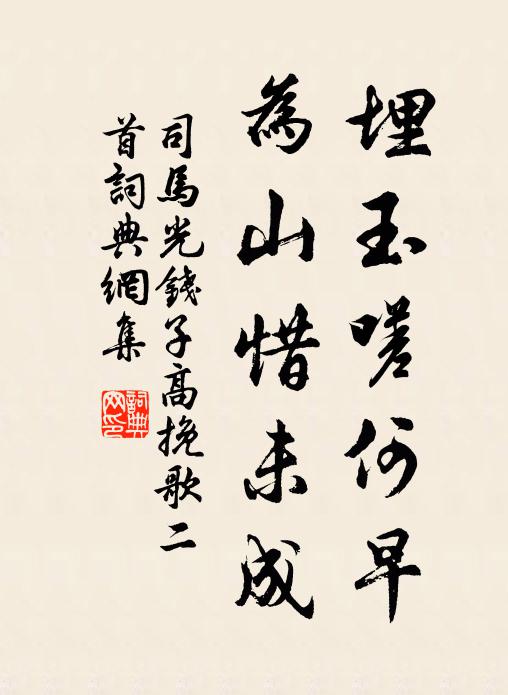 埋玉嗟何早
為山惜未成
司馬光錢子高挽歌二
首詞典網集
詞典
网印